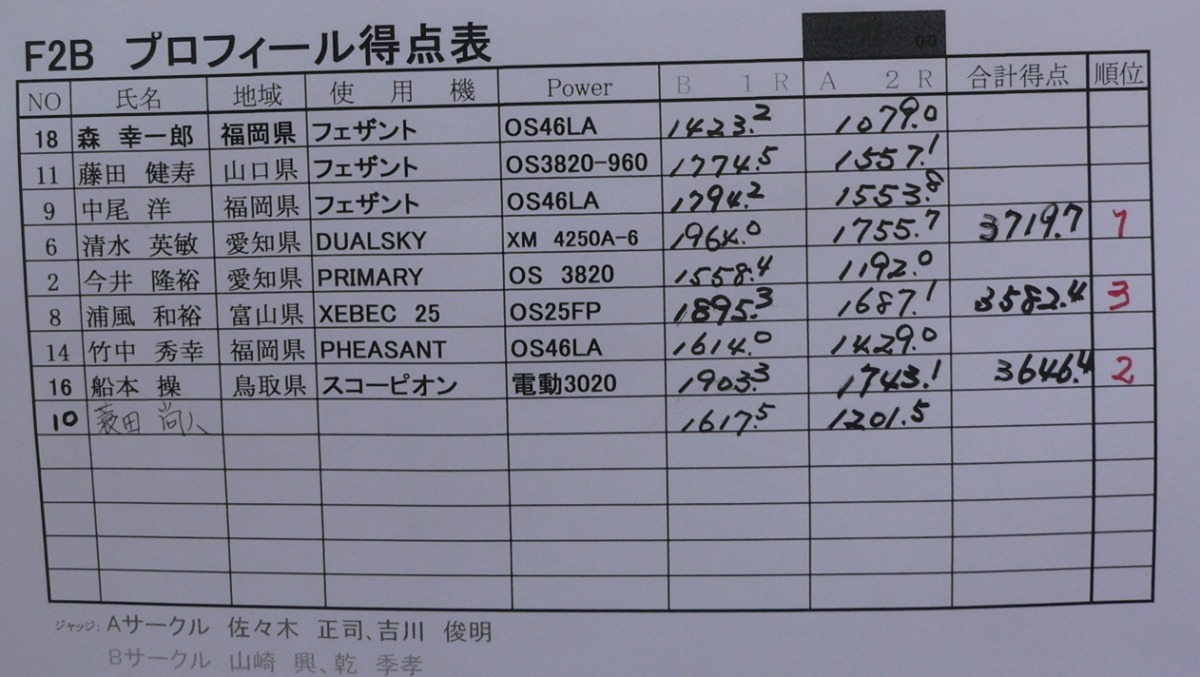 F2B プロフィール得点表
NO 氏名 地域 使用機 Power B 1R A 2R 合計得点 順位
18 森 幸一郎 福岡県 フェザント OS46LA 1423.2 1079.0
11 藤田 健寿 山口県 フェザント OS3820-960 1774.5 1557.1
9 中尾 洋 福岡県 フェザント OS46LA 1794.2 1553.8
6 清水 英敏 愛知県 DUALSKY XM 4250A-6 1964.0 1755.7 3719.7 1
2 今井 隆裕 愛知県 PRIMARY OS 3820 1558.4 1192.0
8 浦風 和裕 富山県 XEBEC 25 OS25FP 1895.3 1687.1 3582.4 3
14 竹中 秀幸 福岡県 PHEASANT OS46LA 1614.0 1429.0
16 船本 操 鳥取県 スコーピオン 電動3020 1903.3 1743.1 3646.4 2
10 蓑田 尚人 1617.5 1201.5
ジャッジ: Aサークル 佐々木 正司、吉川 俊明
Bサークル 山崎 興、乾 季孝